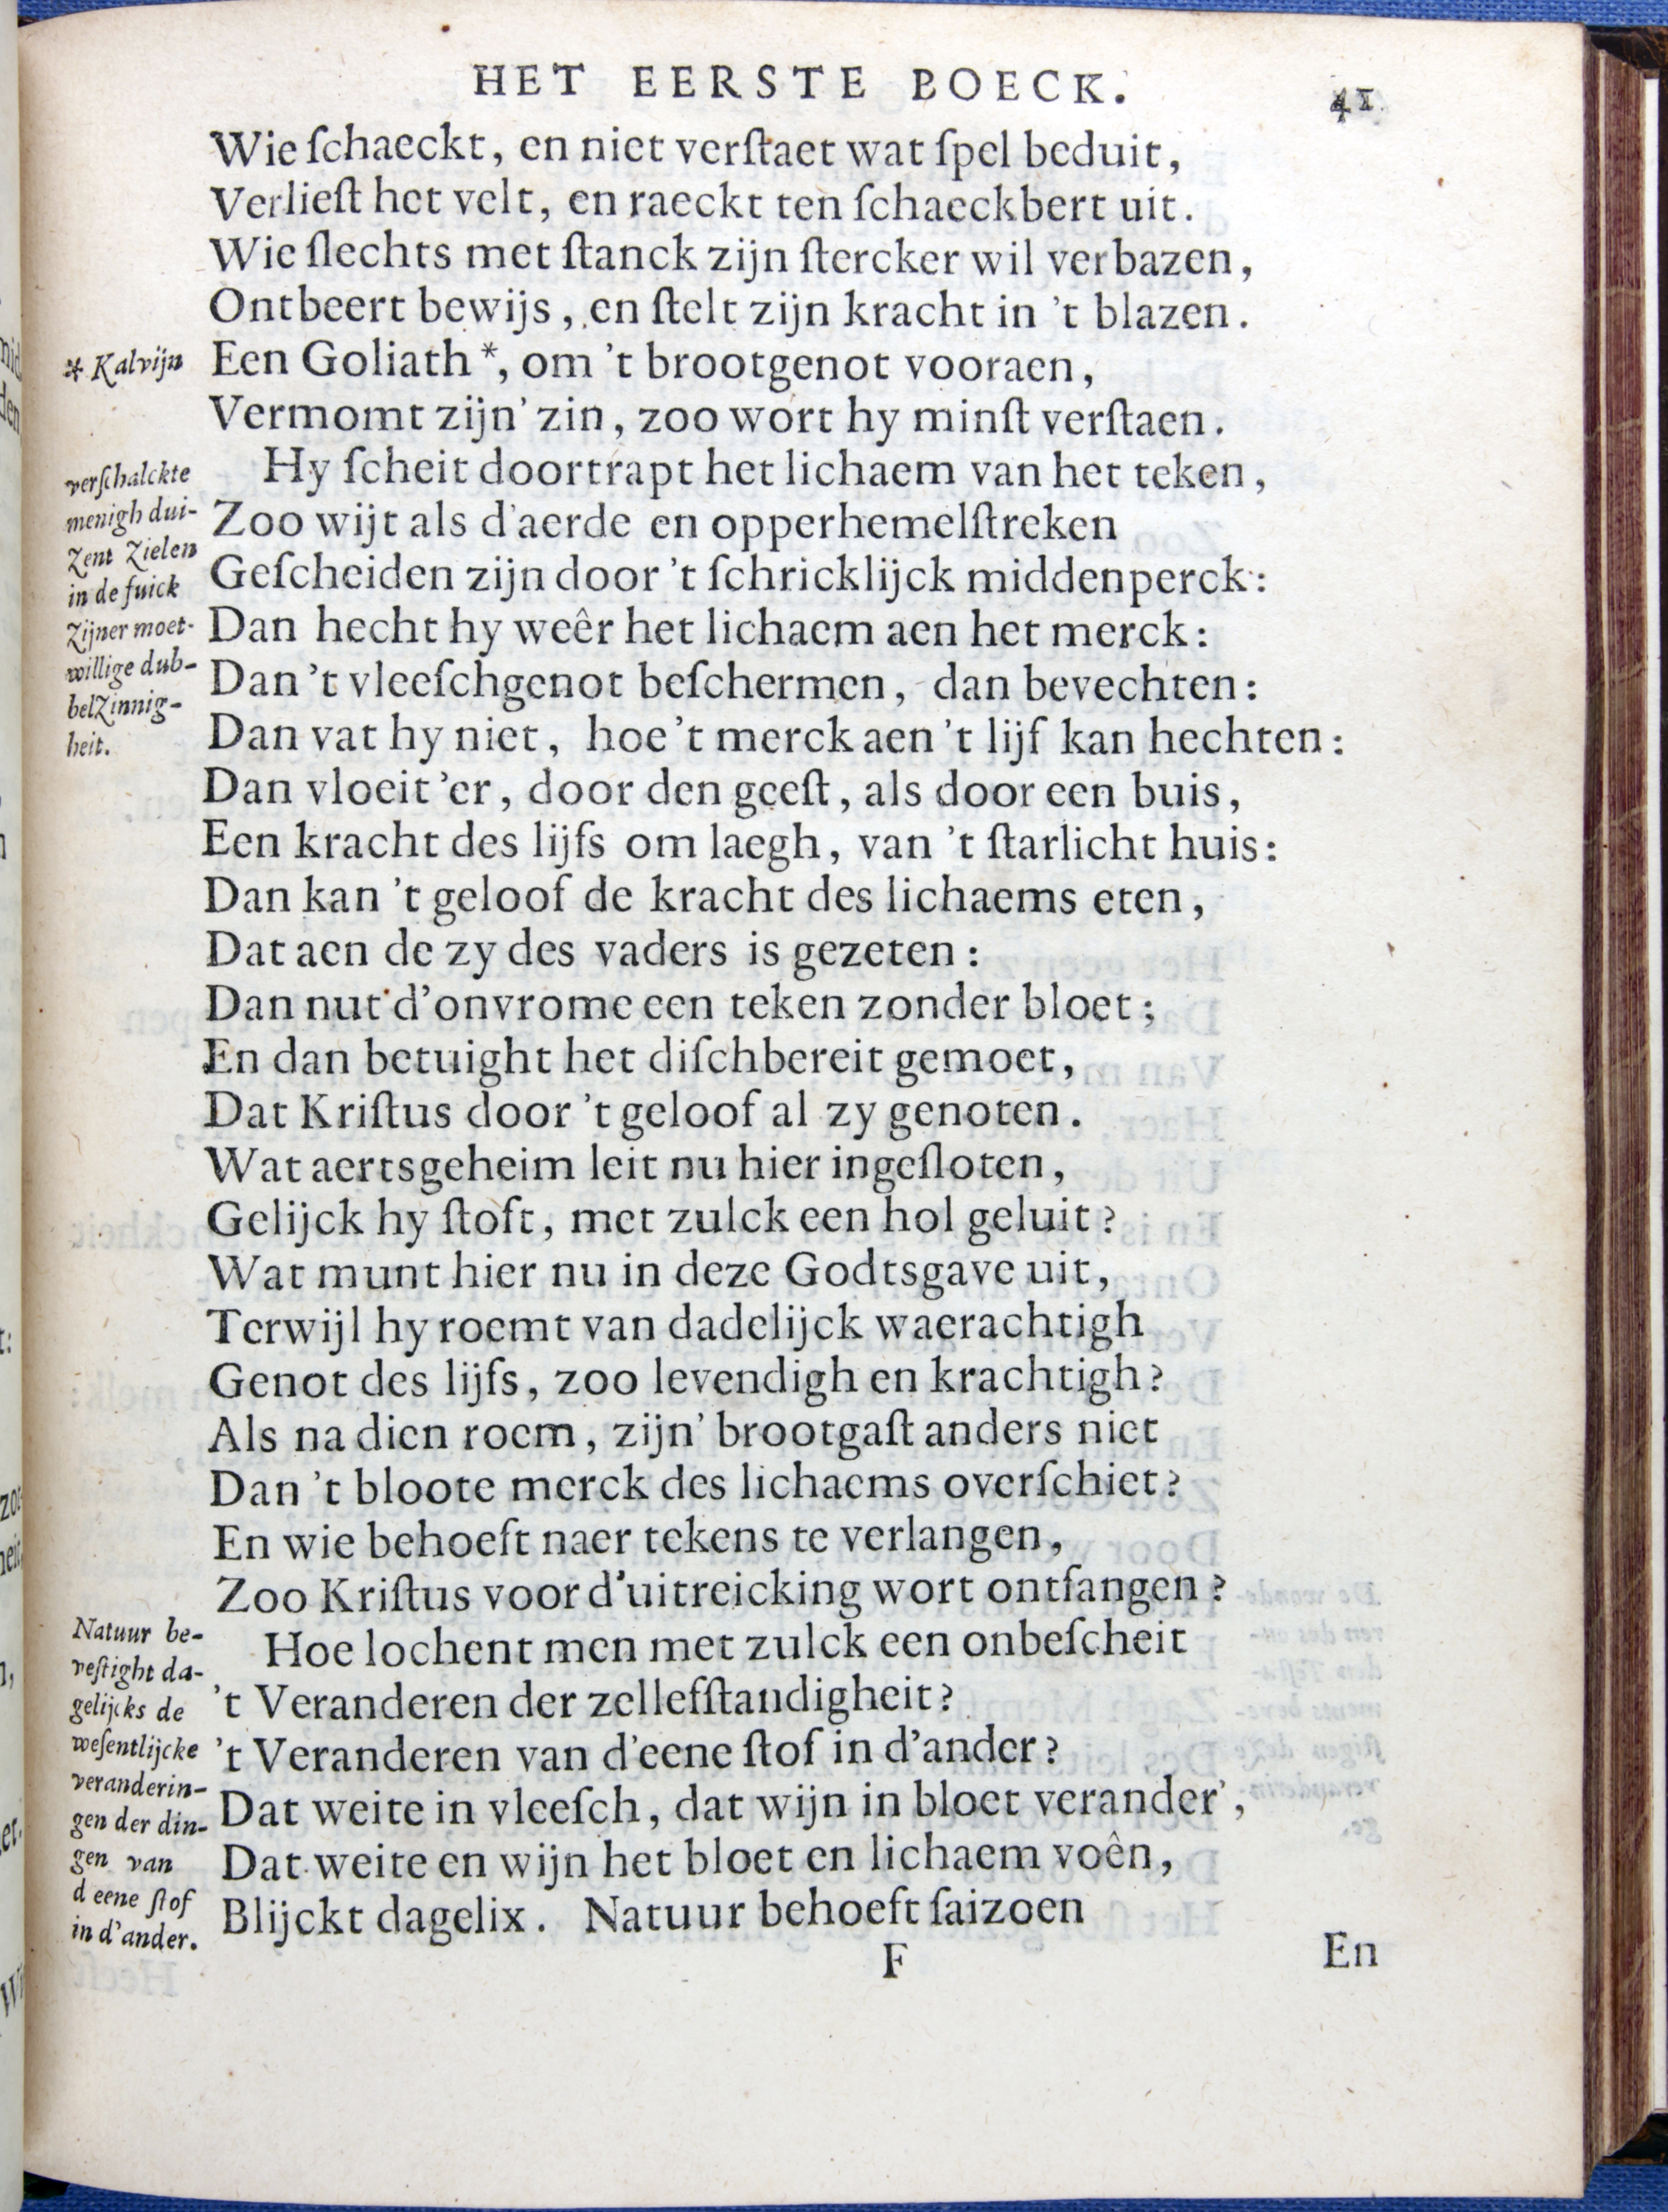 HET EERSTE BOECK. 41
Wie ſchaeckt, en niet verſtaet wat ſpel beduit,
Verlieſt het velt, en raeckt ten ſchaeckbert uit.
Wie ſlechts met ſtanck zijn ſtercker wil verbazen,
Ontbeert bewijs, en ſtelt zijn kracht in 't blazen.
* Kalvijn
Een Goliath *, om 't brootgenot vooraen,
Vermomt zijn' zin, zoo wort hy minſt verſtaen.
verſchalckte
menigh dui-
zent zielen
in de fuick
zijner moet-
willige dub-
belzinnig-
heit.
Hy ſcheit doortrapt het lichaem van het teken,
Zoo wijt als d'aerde en opperhemelſtreken
Geſcheiden zijn door 't ſchricklijck middenperck:
Dan hecht hy weêr het lichaem aen het merck:
Dan 't vleeſchgenot beſchermen, dan bevechten:
Dan vat hy niet, hoe 't merck aen 't lijf kan hechten:
Dan vloeit 'er, door den geeſt, als door een buis,
Een kracht des lijfs om laegh, van 't ſtarlicht huis:
Dan kan 't geloof de kracht des lichaems eten,
Dat aen de zy des vaders is gezeten:
Dan nut d'onvrome een teken zonder bloet;
En dan betuight het diſchbereit gemoet,
Dat Kriſtus door 't geloof al zy genoten.
Wat aertsgeheim leit nu hier ingeſloten,
Gelijck hy ſtoft, met zulck een hol geluit?
Wat munt hier nu in deze Godtsgave uit,
Terwijl hy roemt van dadelijck waerachtigh
Genot des lijfs, zoo levendigh en krachtigh?
Als na dien roem, zijn' brootgaſt anders niet
Dan 't bloote merck des lichaems overſchiet?
En wie behoeft naer tekens te verlangen,
Zoo Kriſtus voor d'uitreicking wort ontfangen?
Natuur be-
veſtight da-
gelijcks de
weſentlijcke
veranderin-
gen der din-
gen van
d eene ſtof
in d'ander.
Hoe lochent men met zulck een onbeſcheit
't Veranderen der zelleſſtandigheit?
't Veranderen van d'eene ſtof in d'ander?
Dat weite in vleeſch, dat wijn in bloet verander',
Dat weite en wijn het bloet en lichaem voên,
Blijckt dagelix. Natuur behoeft ſaizoen
F En